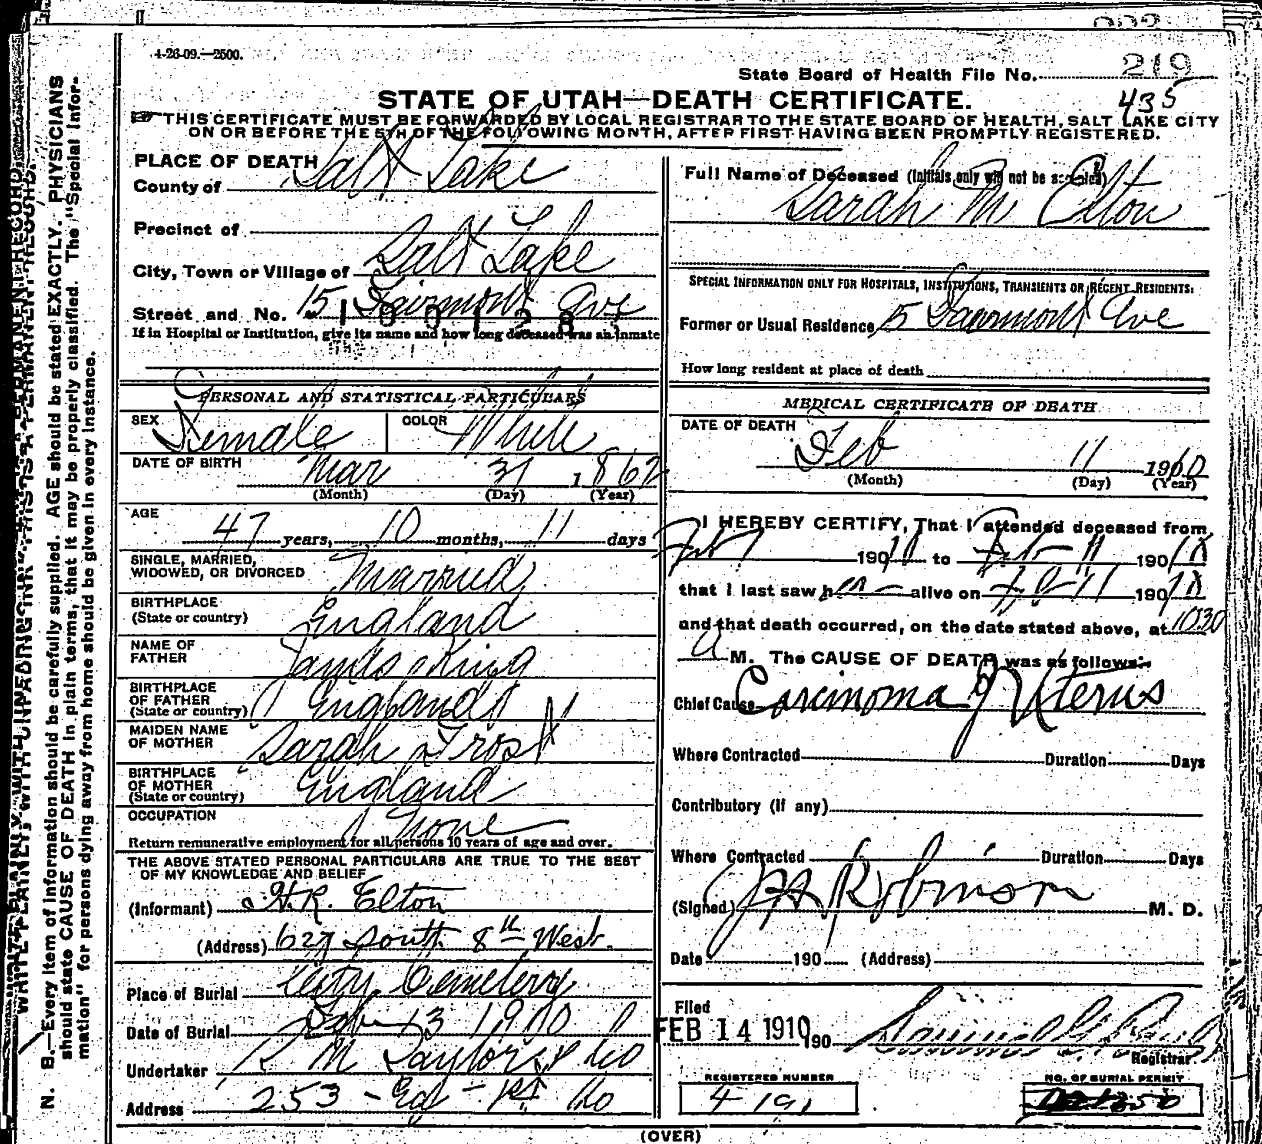 4-26-09.—2500.
State Board of Health File No. 219
435
STATE OF UTAH—DEATH CERTIFICATE.
THIS CERTIFICATE MUST BE FORWARDED BY LOCAL REGISTRAR TO THE STATE BOARD OF HEALTH, SALT LAKE CITY
ON OR BEFORE THE 5TH OF THE FOLLOWING MONTH, AFTER FIRST HAVING BEEN PROMPTLY REGISTERED.
PLACE OF DEATH
County of Salt Lake
Precinct of
City, Town or Village of Salt Lake
Street and No. 15 Fairmont Ave
If in Hospital or Institution, give its name and how long deceased was an inmate
PERSONAL AND STATISTICAL PARTICULARS
SEX Female COLOR White
DATE OF BIRTH Mar 31 1862
(Month) (Day) (Year)
AGE
47 years, 10 months, 11 days
SINGLE, MARRIED,
WIDOWED, OR DIVORCED Married
BIRTHPLACE
(State or country) England
NAME OF
FATHER King
BIRTHPLACE
OF FATHER
(State or country) England
MAIDEN NAME
OF MOTHER Sarah Frost
BIRTHPLACE
OF MOTHER
(State or country) England
OCCUPATION None
Return remunerative employment for all persons 10 years of age and over.
THE ABOVE STATED PERSONAL PARTICULARS ARE TRUE TO THE BEST
OF MY KNOWLEDGE AND BELIEF
(Informant) H. R. Elton
(Address) 627 South 8th West.
Place of Burial City Cemetery
Date of Burial Feb 13 1910
Undertaker S M Taylor & Co
Address 253 - Ed - 1st So
Full Name of Deceased (Initials only will not be accepted)
Sarah M Elton
SPECIAL INFORMATION ONLY FOR HOSPITALS, INSTITUTIONS, TRANSIENTS OR RECENT RESIDENTS:
Former or Usual Residence 15 Fairmont Ave
How long resident at place of death
MEDICAL CERTIFICATE OF DEATH
DATE OF DEATH
Feb 11 1910
(Month) (Day) (Year)
I HEREBY CERTIFY, That I attended deceased from
Feb 7 19010 to Feb 11 19010
that I last saw her alive on Feb 11 19010
and that death occurred, on the date stated above, at 1030
a M. The CAUSE OF DEATH was as follows:
Chief Cause Carcinoma of Uterus
Where Contracted Duration Days
Contributory (if any)
Where Contracted Duration Days
(Signed) Robinson M. D.
Date 190 (Address)
Filed
FEB 14 1910 190
Registrar
REGISTERED NUMBER
4191
NO. OF BURIAL PERMIT
(OVER)
N. B.—Every item of information should be carefully supplied. AGE should be stated EXACTLY. PHYSICIANS
should state CAUSE OF DEATH in plain terms, that it may be properly classified. The "Special Infor-
mation" for persons dying away from home should be given in every instance.